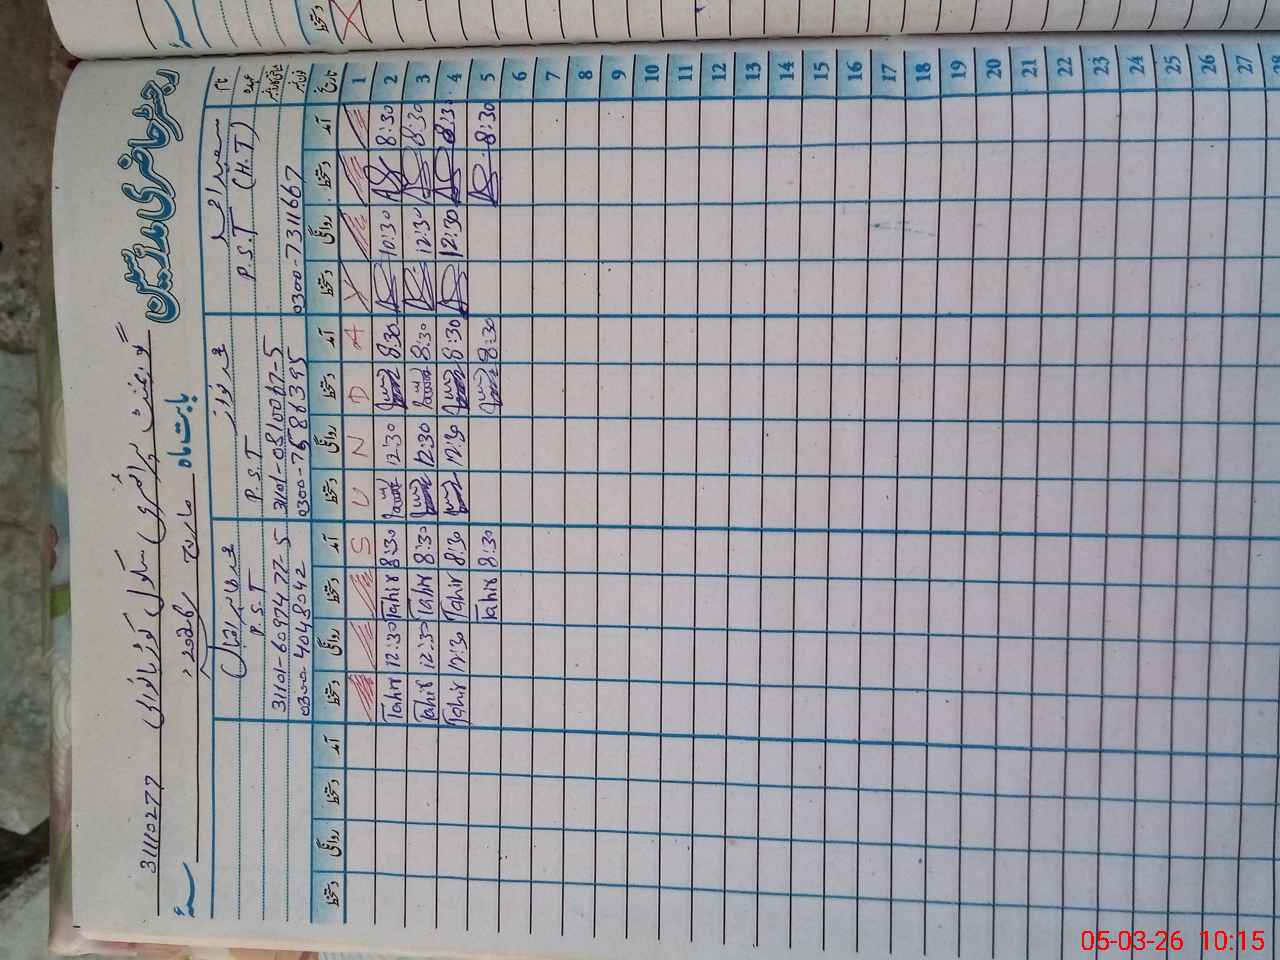 رجسٹر حاضری ملازمین
31110277 گورنمنٹ پرائمری سکول
بابت ماہ مارچ 2026ء سنہ
نام محمد نواز محمد طاہر اقبال
عہدہ P.S.T (H.T) P.S.T P.S.T
شناختی کارڈ نمبر 31101-6097477-5
فون نمبر 0300-7311667 0300-7586395 0300-4048042
تاریخ آمد دستخط روانگی دستخط آمد دستخط روانگی دستخط آمد دستخط روانگی دستخط آمد دستخط روانگی دستخط
1 A D N U S
2 8:30 10:30 8:30 12:30 8:30 Tahir 12:30 Tahir
3 8:30 12:30 8:30 12:30 8:30 Tahir 12:30 Tahir
4 8:30 12:30 8:30 12:30 8:30 Tahir 12:30 Tahir
5 8:30 8:30 8:30 Tahir
6
7
8
9
10
11
12
13
14
15
16
17
18
19
20
21
22
23
24
25
26
27
28
05-03-26 10:15